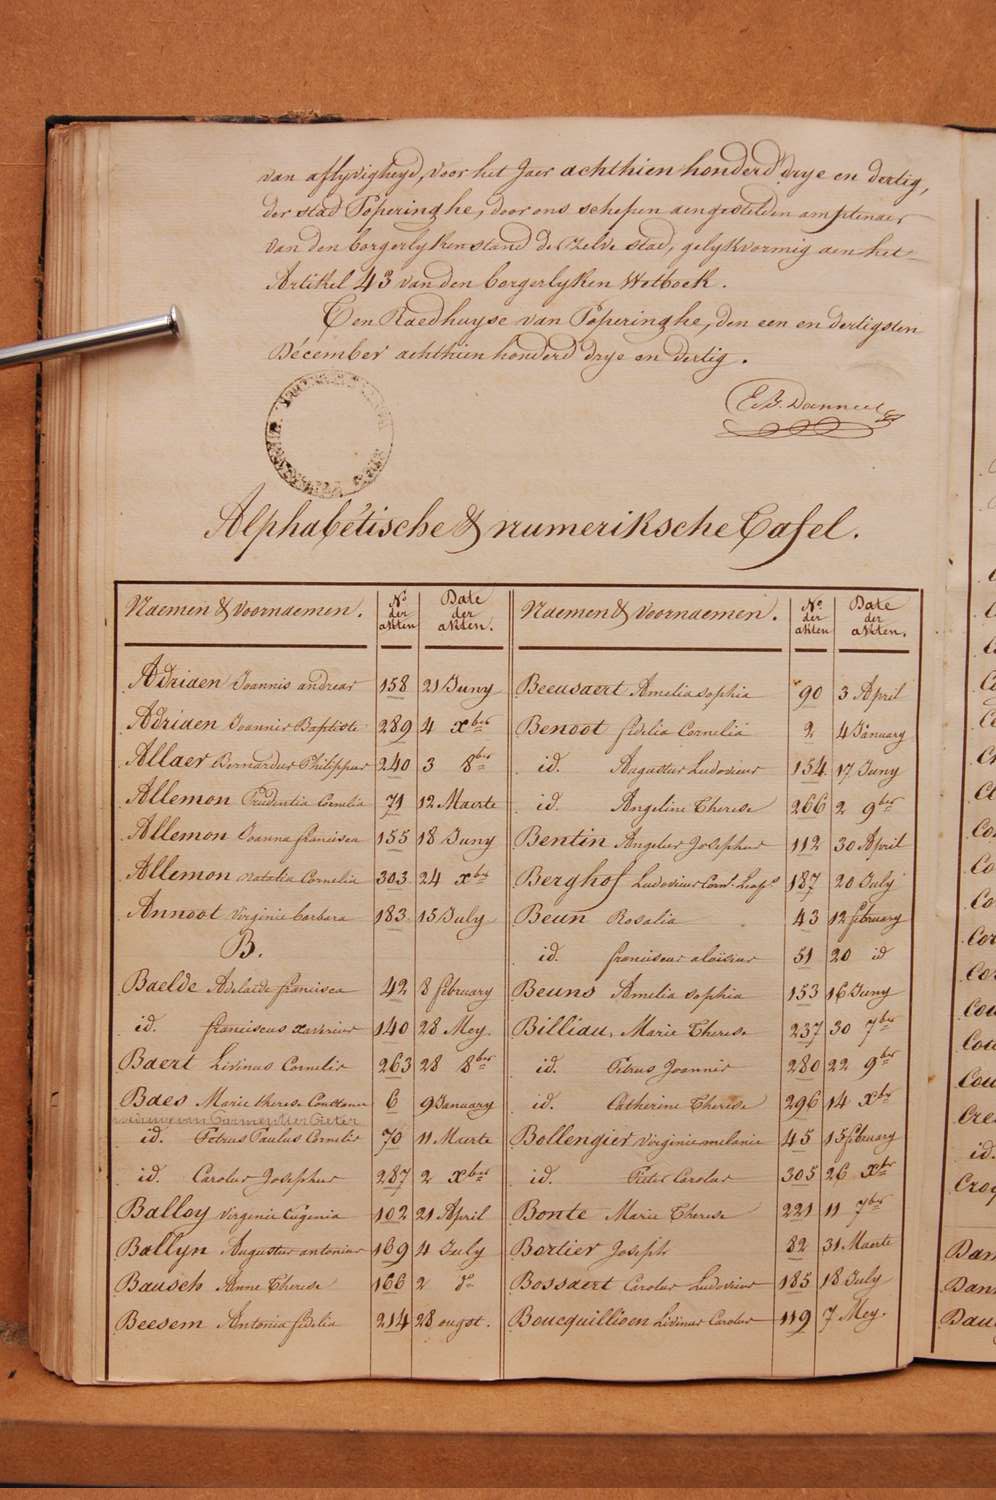 van aflyvigheyd, voor het Jaer achthien honderd drye en dertig,
der stad Poperinghe, door ons schepen aengestelden amptenaer
van den borgerlyken stand de zelve stad, gelykvormig aen het
Artikel 43 van den borgerlyken Wetboek.
Ten Raedhuyse van Poperinghe, den een en dertigsten
Décember achthien honderd drye en dertig.
Alphabétische & numeriksche Tafel.
Naemen & Voornaemen. No der akten Date der akten. Naemen & Voornaemen. No der akten Date der akten.
Adriaen Joannis andreas 158 21 Juny
Adriaen Joannes Baptiste 289 4 xber
Allaer Bernardus Philippus 240 3 8ber
Allemon Prudentia Cornelia 71 12 Maerte
Allemon Joanna francisca 155 18 Juny
Allemon Natalia Cornelia 303 24 xber
Annoot Virginie barbara 183 15 July
B.
Baelde Adelaïde francisca 42 8 february
id. franciscus xaverius 140 28 Mey
Baert Livinus Cornelis 263 28 8ber
Baes Marie therese Constance 6 9 January
id. Petrus Paulus Cornelis 70 11 Maerte
id. Carolus Josephus 287 2 xber
Balloy Virginie Eugenia 102 21 April
Ballyn Augustus antonius 169 4 July
Bausch Anne Therese 166 2 do
Beesem Antonia fidelia 214 28 ougst.
Beeusaert Amelia sophia 90 3 April
Benoot fidelia Cornelia 2 4 January
id. Augustus Ludovicus 154 17 Juny
id. Angeline Therese 266 2 9ber
Bentin Angelus Josephus 112 30 April
Berghof Ludovicus Corn. 187 20 July
Beun Rosalia 43 12 february
id. franciscus aloïsius 51 20 id
Beuns Amelia sophia 153 16 Juny
Billiau, Marie Therese 237 30 7ber
id. Petrus Joannes 280 22 9ber
id. Catherine Therese 296 14 xber
Bollengier Virginie melanie 45 15 february
id. Pieter Carolus 305 26 xber
Bonte Marie Therese 221 11 7ber
Bortier Joseph 82 31 Maerte
Bossaert Carolus Ludovicus 185 18 July
Boucquillioen Livinus Carolus 119 7 Mey.